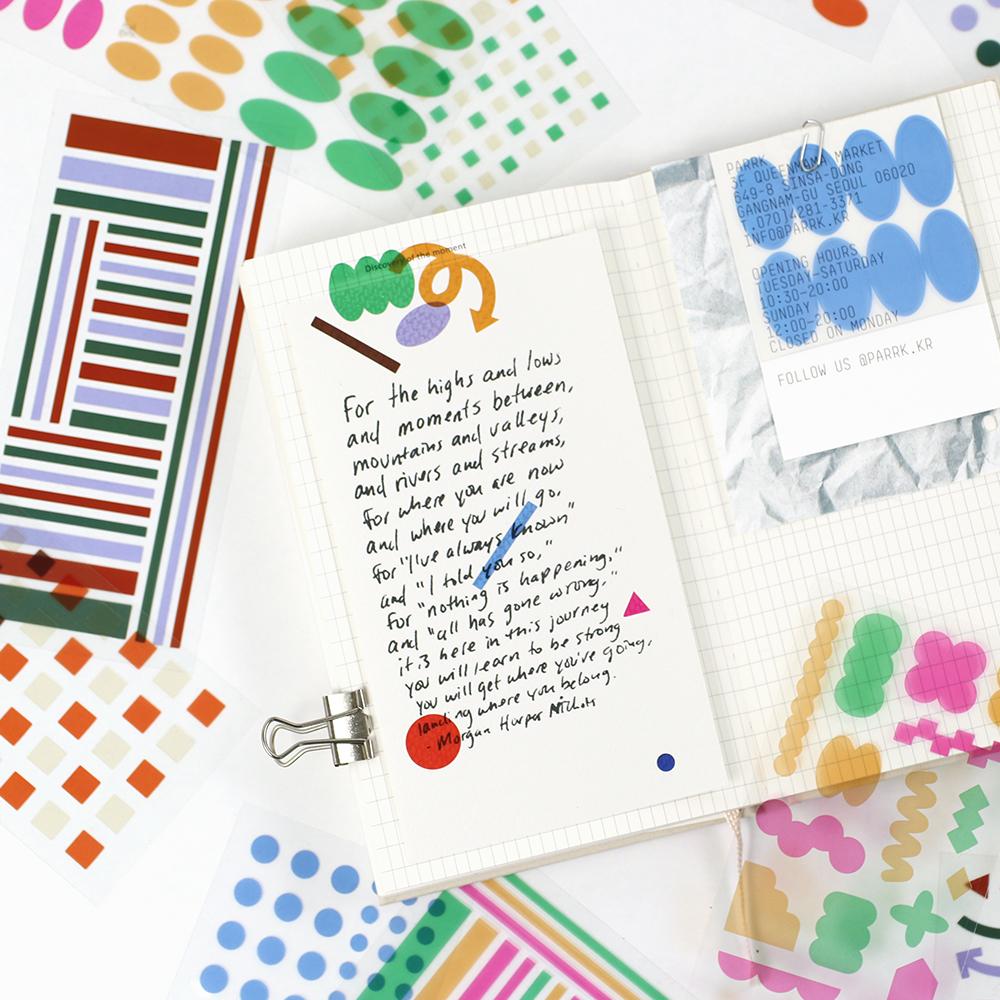 Discovery of the moment
For the highs and lows
and moments between,
mountains and valleys,
and rivers and streams,
for where you are now
and where you will go,
for "I've always known"
and "I told you so,"
for "nothing is happening,"
and "all has gone wrong."
it is here in this journey
you will learn to be strong
you will get where you're going,
landing where you belong.
- Morgan Harper Nichols
PARRK
3F QUEENMAMA MARKET
649-8 SINSA-DONG
GANGNAM-GU SEOUL 06020
T.070)4281-3371
INFO@PARRK.KR
OPENING HOURS
TUESDAY-SATURDAY
10:30-20:00
SUNDAY
12:00-20:00
CLOSED ON MONDAY
FOLLOW US @PARRK.KR